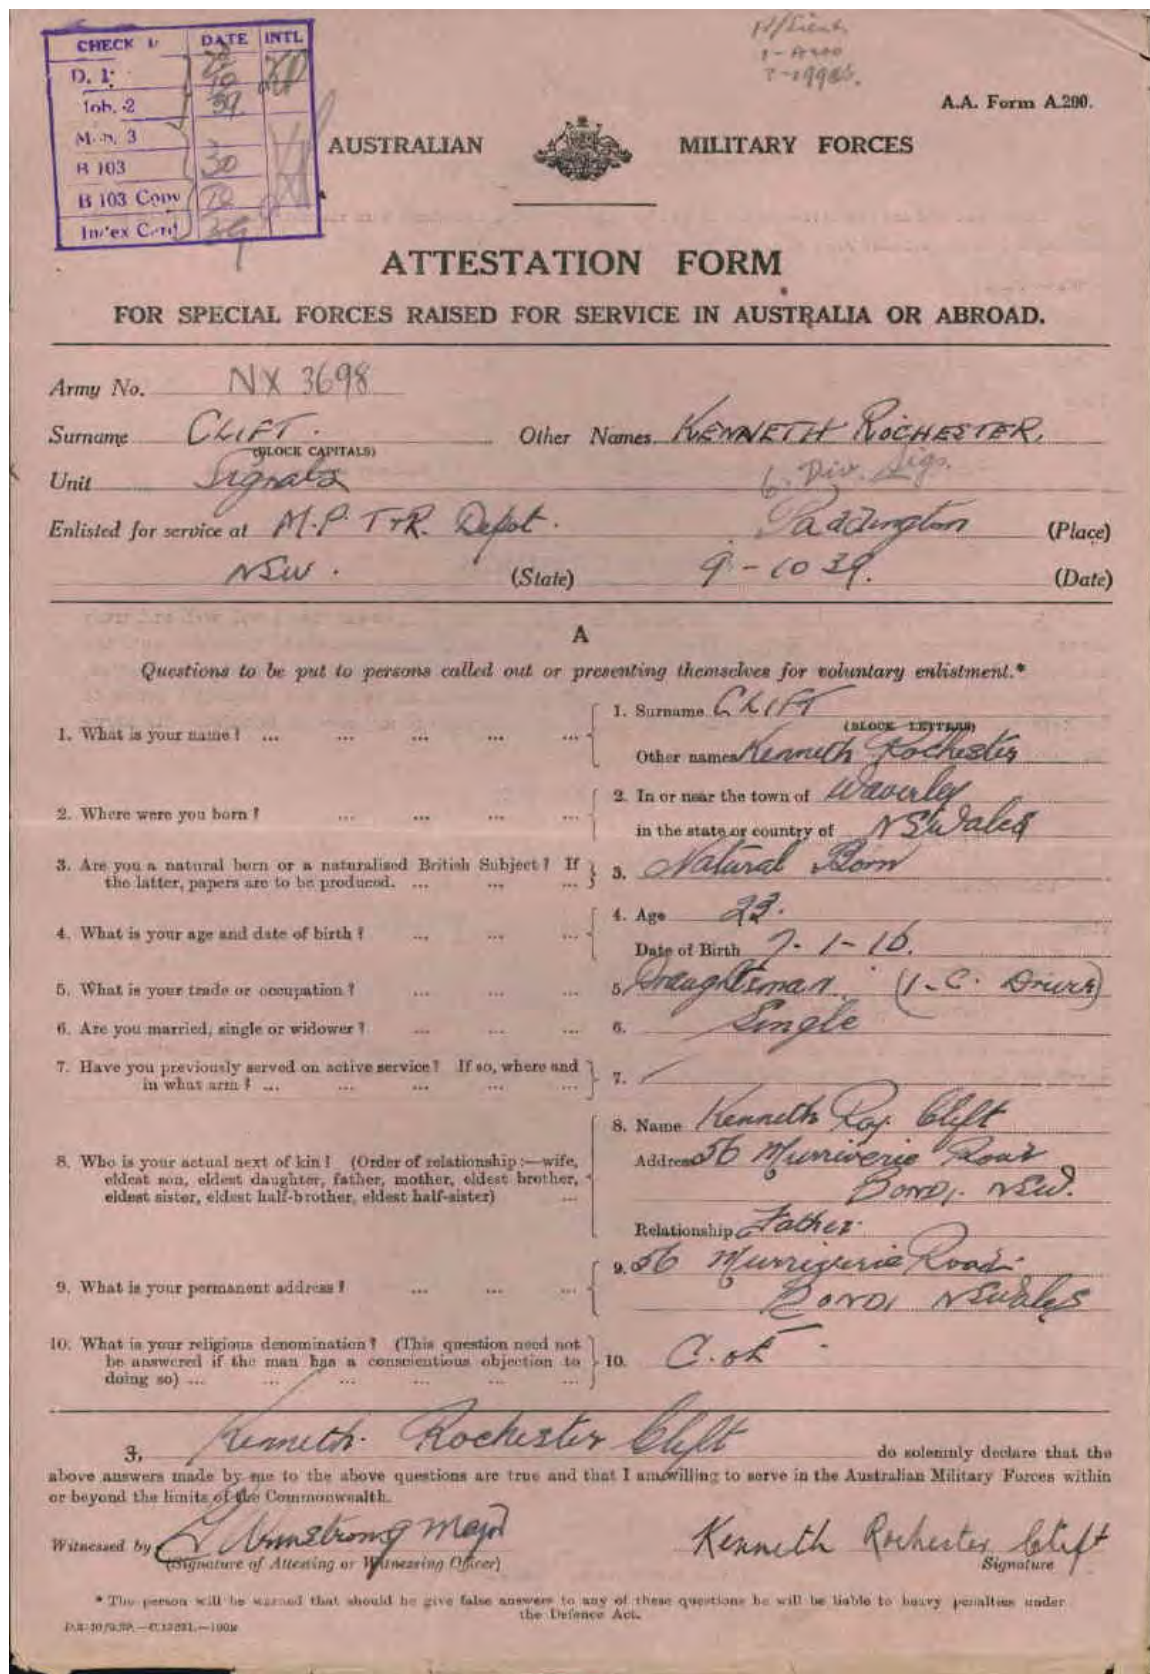 CHECK DATE INTL
D. 1
Tob. 2
39
3
B 103 30
B 103 Copy 10
Index Card 39
A.A. Form A.200.
AUSTRALIAN MILITARY FORCES
ATTESTATION FORM
FOR SPECIAL FORCES RAISED FOR SERVICE IN AUSTRALIA OR ABROAD.
Army No. NX 3698
Surname CLIFT. Other Names KENNETH ROCHESTER.
(BLOCK CAPITALS)
Unit Signals 6. Div. Sigs.
Enlisted for service at M.P. T+R. Depot. Paddington (Place)
NSW. (State) 9-10 39. (Date)
A
Questions to be put to persons called out or presenting themselves for voluntary enlistment.*
1. What is your name? ... ... ... ... ... 1. Surname CLIFT
(BLOCK LETTERS)
Other names Kenneth Rochester
2. Where were you born? ... ... ... ... 2. In or near the town of Waverley
in the state or country of NSWales
3. Are you a natural born or a naturalised British Subject? If the latter, papers are to be produced. ... ... ... 3. Natural Born
4. What is your age and date of birth? ... ... ... 4. Age 23.
Date of Birth 7-1-16.
5. What is your trade or occupation? ... ... ... 5. Draughtsman. (I.C. Driver)
6. Are you married, single or widower? ... ... ... 6. Single
7. Have you previously served on active service? If so, where and
in what arm? ... ... ... ... ... 7.
8. Name Kenneth Roy Clift
8. Who is your actual next of kin? (Order of relationship:—wife, Address 56 Murriverie Road
eldest son, eldest daughter, father, mother, eldest brother, Bondi. NSW.
eldest sister, eldest half-brother, eldest half-sister) ...
Relationship Father.
9. 56 Murriverie Road
9. What is your permanent address? ... ... ... Bondi NSWales
10. What is your religious denomination? (This question need not
be answered if the man has a conscientious objection to 10. C. of E
doing so) ... ... ... ... ... ...
I, Kenneth Rochester Clift do solemnly declare that the
above answers made by me to the above questions are true and that I am willing to serve in the Australian Military Forces within
or beyond the limits of the Commonwealth.
Witnessed by Armstrong Major Kenneth Rochester Clift
(Signature of Attesting or Witnessing Officer) Signature
* The person will be warned that should he give false answers to any of these questions he will be liable to heavy penalties under
the Defence Act.